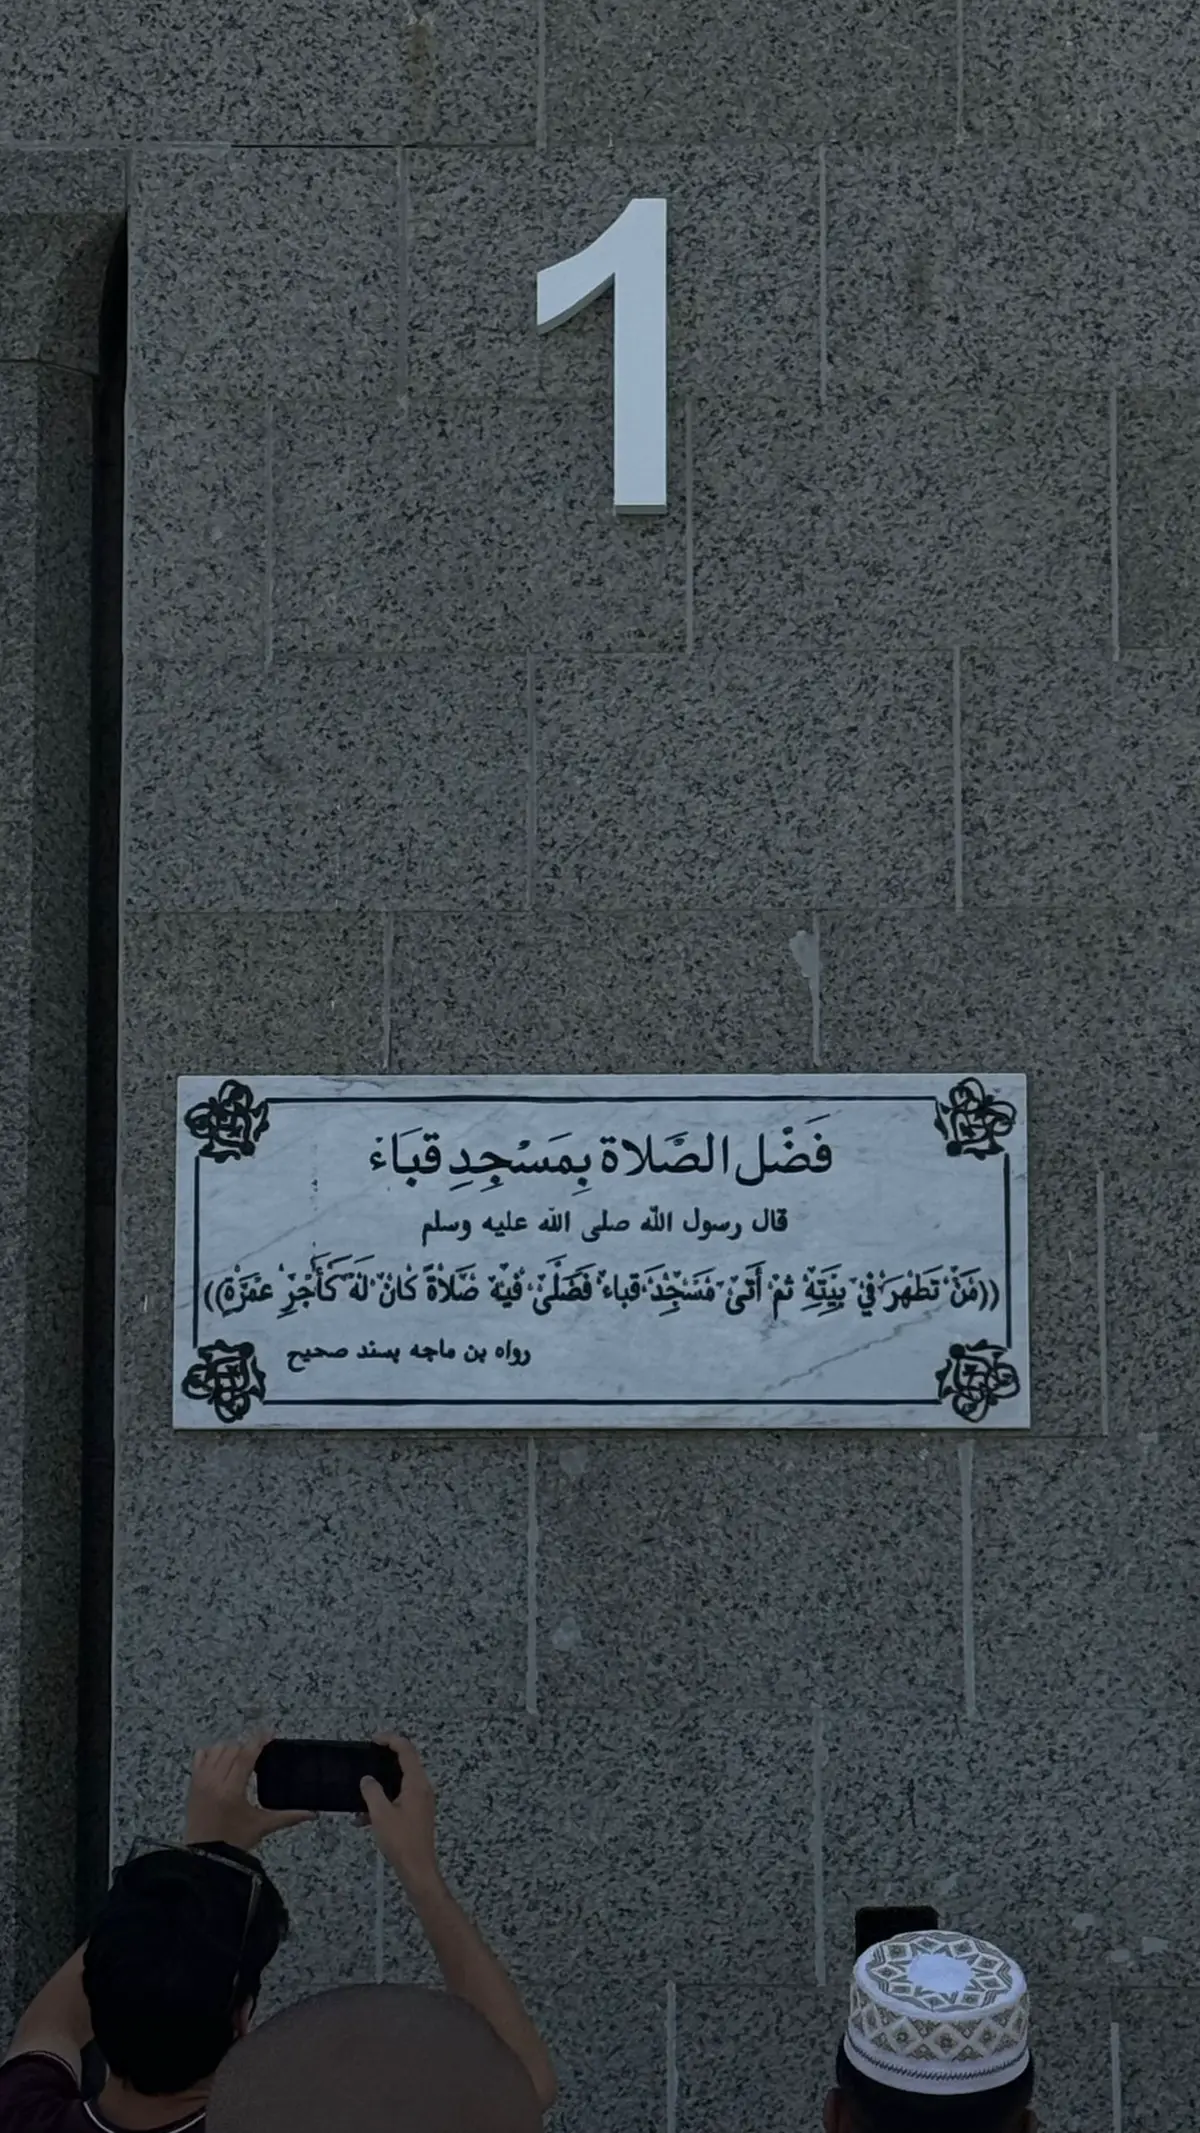 1
فَضْل الصَّلاة بِمَسْجِدِ قُبَاءْ
قال رسول الله صلى الله عليه وسلم
((مَنْ تَطَهَرَ فْي بَيْتِهِ ثمْ أَتىَ مَسْجِدَ قباء فَصَلَّىْ فيْه صَلاةً كَانْ لَهُ كَأَجْرِ عُمْرَةْ))
رواه بن ماجه بسند صحيح